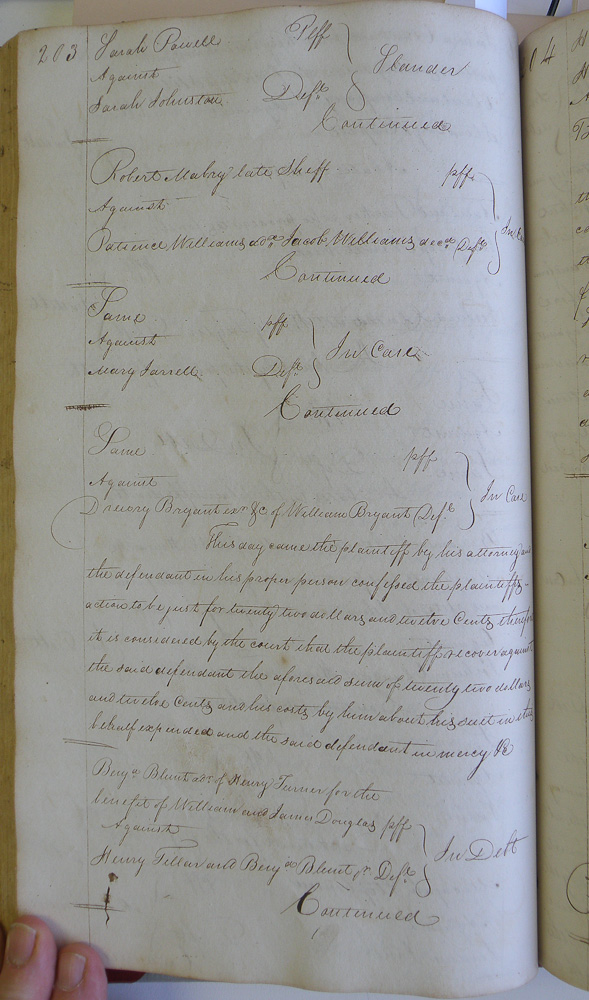 203
Sarah Powell Plff
Against Slander
Sarah Johnston Deft
Continued
Robert Mabry late Sheff plff
Against In Ca
Patience Williams adx. Jacob Williams decd. Deft
Continued
Same plff
Against In Case
Mary Jarrell Deft
Continued
Same plff
Against In Case
Drewry Bryant exr &c of William Bryant Deft
This day came the plaintiff by his attorney an
the defendant in his proper person confessed the plaintiffs
action to be just for twenty two dollars and twelve Cents therefo
it is considered by the court that the plaintiff recover against
the said defendant the aforesaid sum of twenty two dollars
and twelve Cents and his costs by him about his suit in this
behalf expended and the said defendant in mercy &c
Benja. Blunt adr. of Henry Turner for the
benefit of William and James Douglas plff
Against In Debt
Henry and Benja Blunt Deft
Continued
04